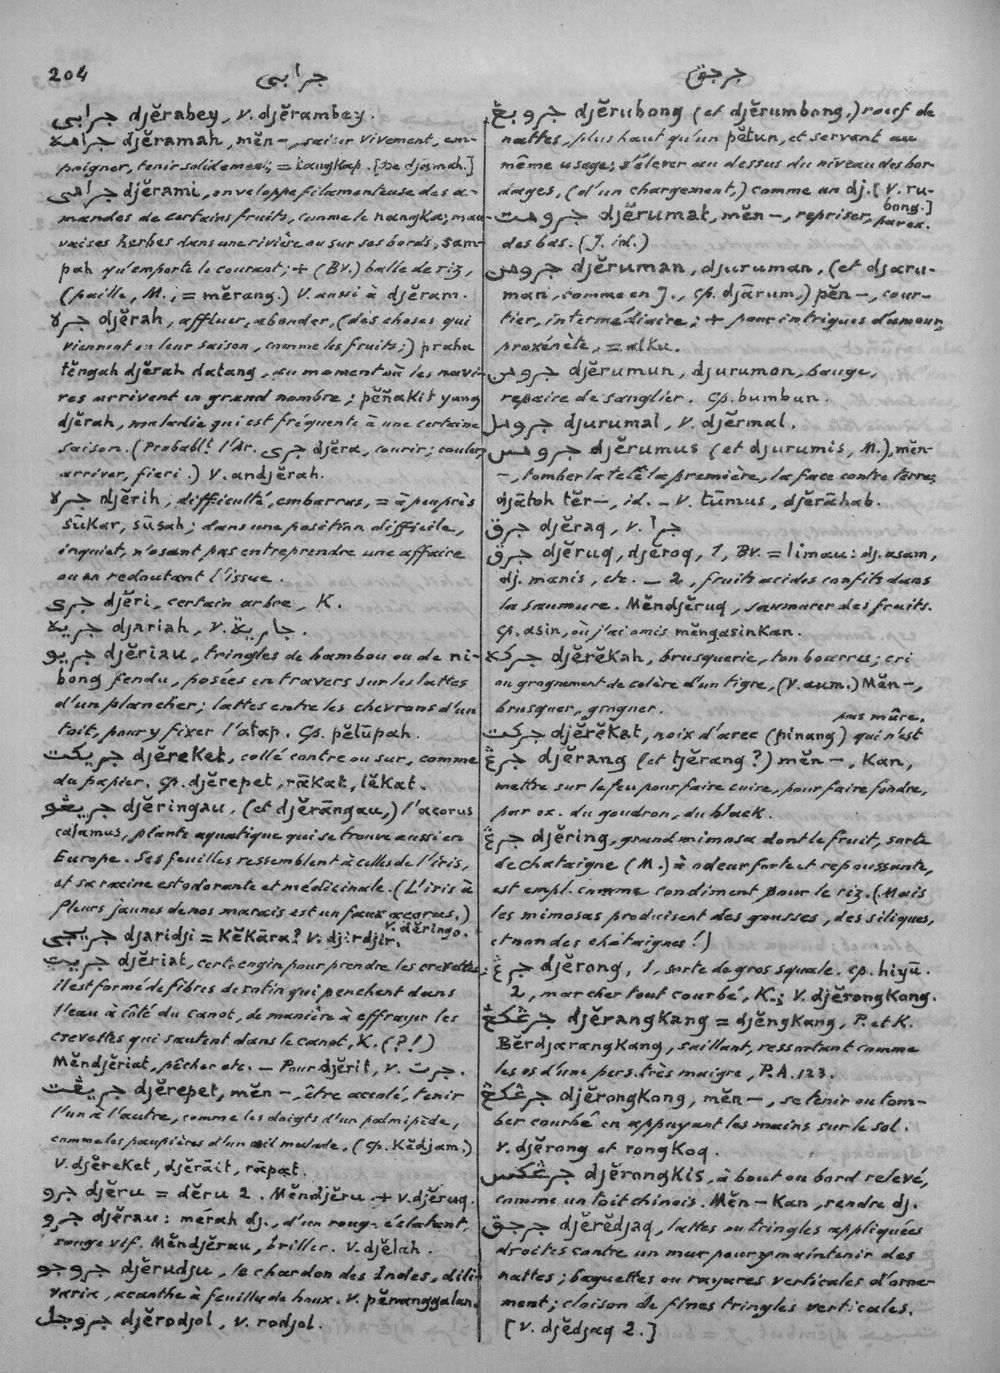 204
جرابي
جرجق
جرابي djĕrabey, v. djĕrambey.
djĕramah, mĕn-, saisir vivement, em-
poigner, tenir solidement; = tangkap. [De djamah.]
جرامي djĕrami, enveloppe filamenteuse des a-
mandes de certains fruits, comme le nangka; mau-
vaises herbes dans une rivière ou sur ses bords, sam-
pah qu'emporte le courant; + (Bv.) balle de riz,
(paille, M., = mĕrang.) V. aussi à djĕram.
جره djĕrah, affluer, abonder, (des choses qui
viennent en leur saison, comme les fruits;) prahu
tĕngah djĕrah datang, au moment où les navi-
res arrivent en grand nombre; pĕñakit yang
djĕrah, maladie qui est fréquente à une certaine
saison. (Probablt. l'Ar. جرى djĕra, courir; couler,
arriver, fieri.) V. andjĕrah.
جره djĕrih, difficulté, embarras, = à peu près
sūkar, sūsah; dans une position difficile,
inquiet, n'osant pas entreprendre une affaire
ou en redoutant l'issue.
جري djĕri, certain arbre, K.
جريه djariah, v. جارية.
جريو djĕriau, tringles de bambou ou de ni-
bong fendu, posées en travers sur les lattes
d'un plancher; lattes entre les chevrons d'un
toit, pour y fixer l'atap. Cp. pĕlūpah.
جريكت djĕreket, collé contre ou sur, comme
du papier. Cp. djĕrepet, rākat, lĕkat.
جريڠو djĕringau, (et djĕrāngau,) l'acorus
calamus, plante aquatique qui se trouve aussi en
Europe. Ses feuilles ressemblent à celles de l'iris,
et sa racine est odorante et médicinale. (L'iris à
fleurs jaunes de nos marais est un faux acorus.)
V. dĕringo.
جريجي djaridji = kĕkāra? V. djirdjir.
جريت djĕriat, cert. engin pour prendre les crevettes;
il est formé de fibres de rotin qui penchent dans
l'eau à côté du canot, de manière à effrayer les
crevettes qui sautent dans le canot, K. (?!)
Mĕndjĕriat, pêcher etc. — Pour djĕrit, v. جرت.
جريڤت djĕrepet, mĕn-, être accolé, tenir
l'un à l'autre, comme les doigts d'un palmipède,
comme les paupières d'un œil malade. (Cp. kĕdjam.)
V. djĕreket, djĕrāit, rāpat.
جرو djĕru = dĕru 2. Mĕndjĕru + v. djĕruq.
جرو djĕrau: mérah dj., d'un rouge éclatant,
rouge vif. Mĕndjĕrau, briller. V. djĕlah.
جروجو djĕrudju, le chardon des Indes, dili-
varia, acanthe à feuilles de houx. V. pĕranggalan.
جروجل djĕrodjol, v. rodjol.
جروبڠ djĕrubong (et djĕrumbong,) rouf de
nattes, plus haut qu'un pĕtun, et servant au
même usage; s'élever au dessus du niveau des bor-
dages, (d'un chargement,) comme un dj. [V. ru-
bong.]
جرومت djĕrumat, mĕn-, repriser, par ex.
des bas. (J. id.)
جرومن djĕruman, djuruman, (et djaru-
man, comme en J., cp. djārum,) pĕn-, cour-
tier, intermédiaire; + pour intrigues d'amour,
proxénète, = alku.
جرومن djĕrumun, djurumon, bauge,
repaire de sanglier. Cp. bumbun.
جرومل djurumal, v. djĕrmal.
جرومس djĕrumus (et djurumis, M.), mĕn-
-, tomber la tete la première, la face contre terre;
djātoh tĕr-, id. — V. tūmus, djĕrāhab.
جرق djĕraq, v. جرا
جرق djĕruq, djĕroq, 1, Bv. = limau: dj. asam,
dj. manis, etc. — 2, fruits acides confits dans
la saumure. Mĕndjĕruq, saumurer des fruits.
Cp. asin, où j'ai omis mĕngasinkan.
جركه djĕrĕkah, brusquerie, ton bourru; cri
ou grognement de colère d'un tigre, (V. aum.) Mĕn-,
brusquer, grogner.
جركت djĕrĕkat, noix d'arec (pinang) qui n'est
pas mûre.
جرڠ djĕrang (et tjĕrang?) mĕn-, kan,
mettre sur le feu pour faire cuire, pour faire fondre,
par ex. du goudron, du black.
جرڠ djĕring, grand mimosa dont le fruit, sorte
de chataigne (M.) à odeur forte et repoussante,
est empl. comme condiment pour le riz. (Mais
les mimosas produisent des gousses, des siliques,
et non des châtaignes!)
جرڠ djĕrong, 1, sorte de gros squale. cp. hiyū.
2, marcher tout courbé, K.; V. djĕrongkong.
جرڠكڠ djĕrangkang = djĕngkang, P. et K.
Bĕrdjarangkang, saillant, ressortant comme
les os d'une pers. très maigre, P.A. 123.
جرڠكڠ djĕrongkong, mĕn-, se tenir ou tom-
ber courbé en appuyant les mains sur le sol.
V. djĕrong et rongkoq.
جرڠكس djĕrongkis, à bout ou bord relevé,
comme un toit chinois. Mĕn-kan, rendre dj.
جرجق djĕrĕdjaq, lattes ou tringles appliquées
droites contre un mur pour y maintenir des
nattes; baguettes ou rayures verticales d'orne-
ment; cloison de fines tringles verticales.
[V. djĕdjaq 2.]